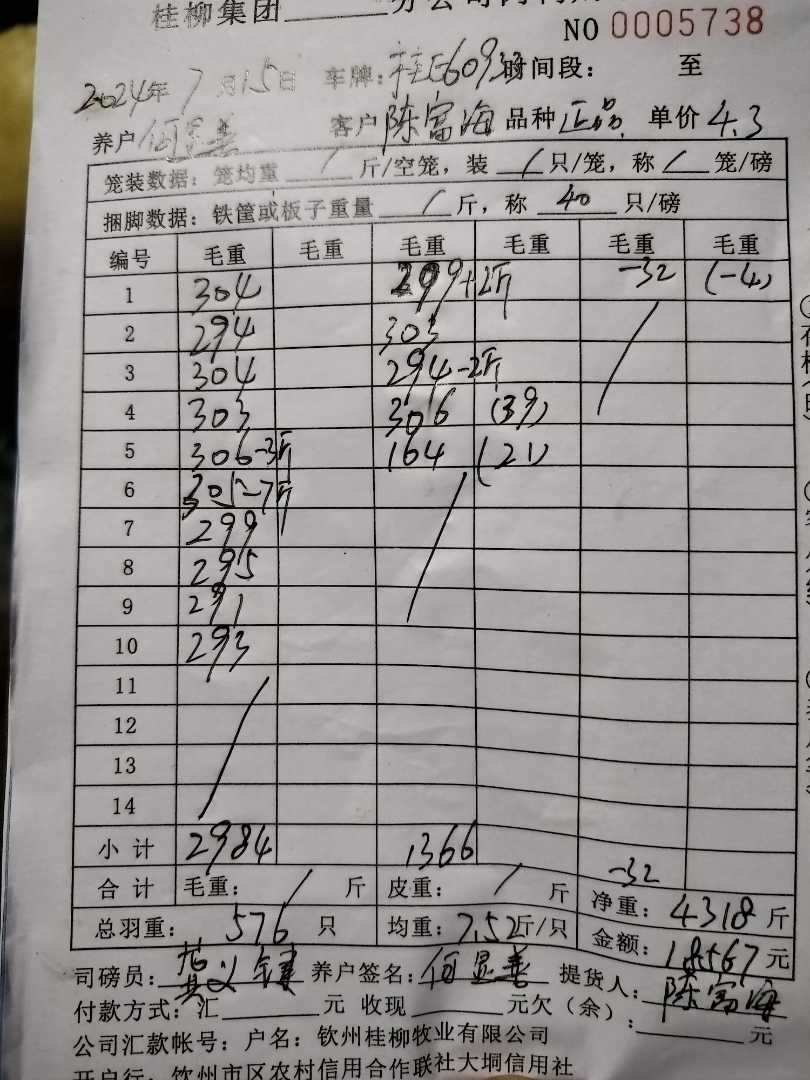 桂柳集团______分公司
NO 0005738
2024年7月15日 车牌：桂E60933 时间段： 至
养户 何显善 客户 陈富海 品种 正品 单价 4.3
笼装数据：笼均重 / 斤/空笼，装 / 只/笼，称 / 笼/磅
捆脚数据：铁筐或板子重量 / 斤，称 40 只/磅
编号 毛重 毛重 毛重 毛重 毛重 毛重
1 304 299+2斤 -32 (-4)
2 294 303
3 304 294-2斤
4 303 306 (39)
5 306-3斤 164 (21)
6 305-7斤
7 299
8 295
9 291
10 293
11
12
13
14
小计 2984 1366
合计 毛重： / 斤 皮重： / 斤 -32 净重：4318斤
总羽重：576只 均重：7.52斤/只 金额：18567元
司磅员： 养户签名：何显善 提货人：陈富海
付款方式：汇______元 收现______元欠（余）：______元
公司汇款帐号：户名：钦州桂柳牧业有限公司
开户行：钦州市区农村信用合作联社大垌信用社